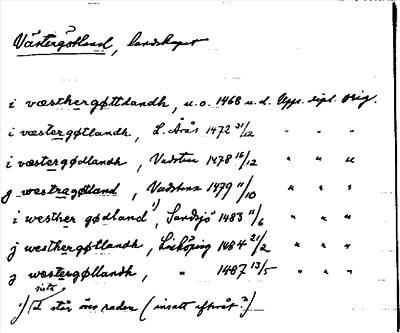 Västergötland, landskapet
i wæsthergøttlandh, u.o. 1468 u.d. Upps. dipl. orig.
i væstergøtlandh, L. Ås 1472 31/12 " " "
i væstergødlandh, Vadstena 1478 16/12 " " "
y westragøtland, Vadstena 1479 11/10 " " "
i westher gødland 1), Sandsjö 1483 11/6 " " "
j westhergøtlandh, Linköping 1484 21/2 " " "
y westergøtlandh, " 1487 13/5 " " "
sista
1) d står över raden (insatt efteråt?)